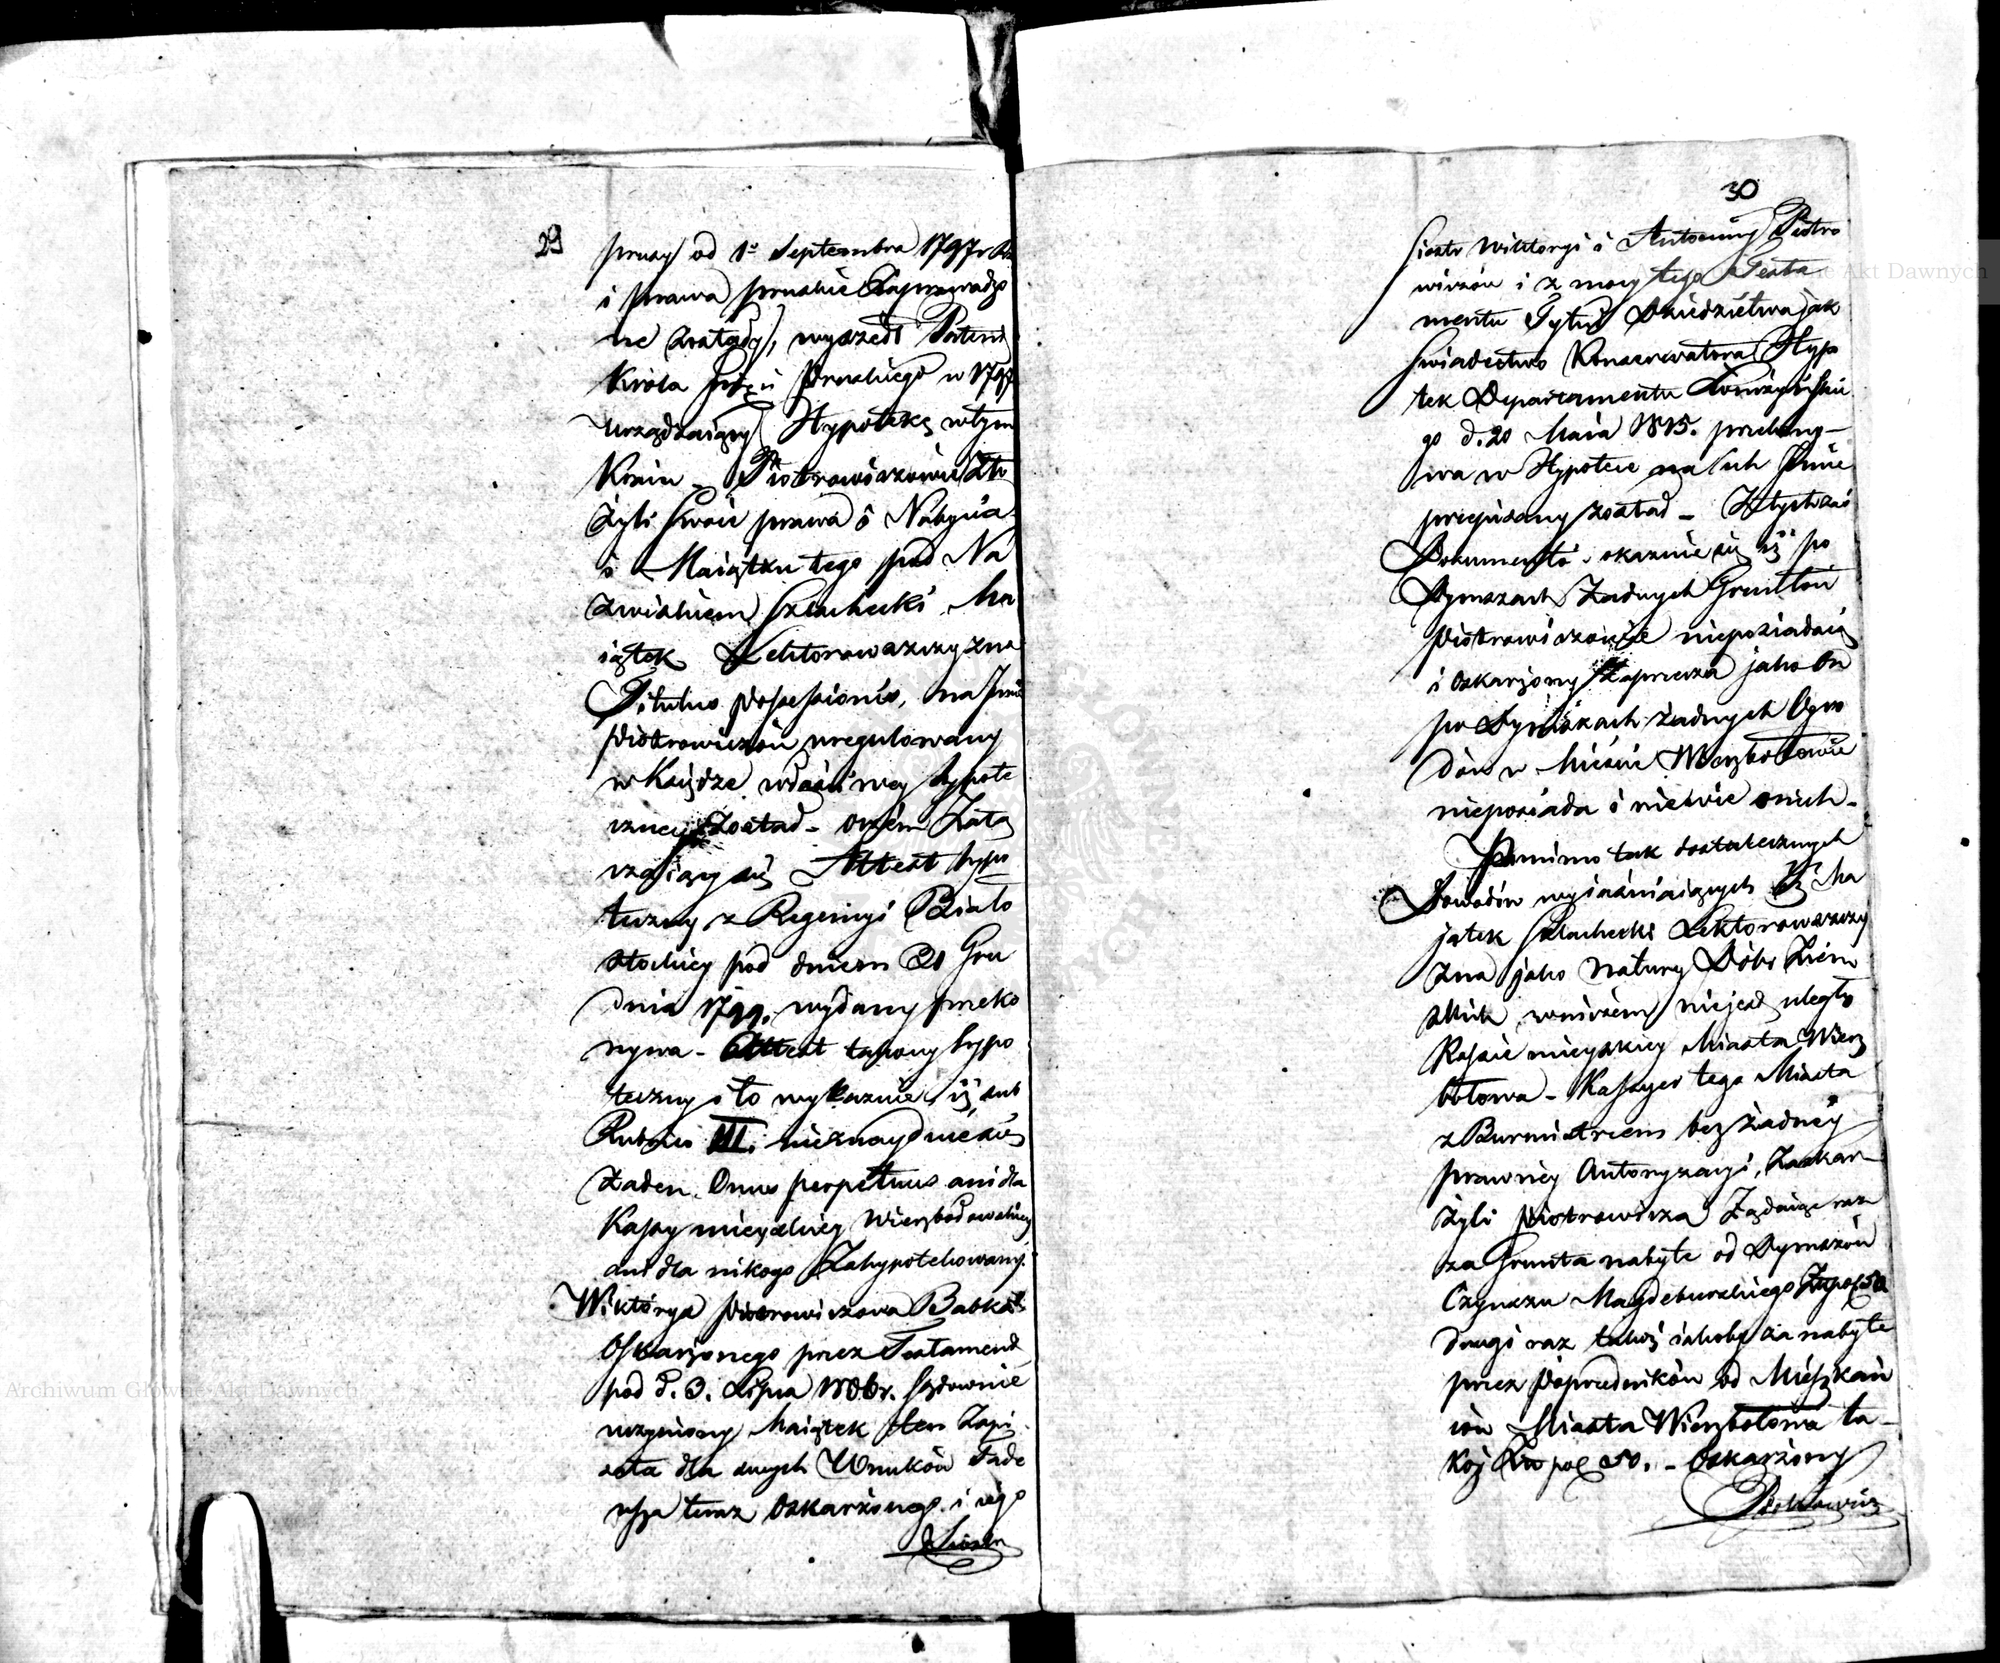 29
prusy od 1º Septembra 1797 r
i prawa pruskie Zaprowadzo
ne zostały, wyszedł Patent
Króla Jmci Pruskiego w 1797
urządzaiący Hypotekę w tym
Kraiu - Piotrowiczowie Zło
żyli swoie prawa o Nabycia
i Maiątku tego pod Na
zwiskiem szlachecki Ma
iątek Lektorowszczyzna
Titulus possessionis, na Jmie
Piotrowiczów uregulowany
w Księdze właściwey hypote
czney Został - oczém Załą
czaiący się Attest hypo
teczny z Regencyi Biało
stockiey pod dniem 21 Gru
dnia 1799. wydany przeko
nywa - Attest takowy hypo
teczny i to wykazuie iż sub
Rubrica III. nieznayduie się
Żaden Onus perpetuus ani dla
Kassy mieyskiey Wierzbołowskiey
ani dla nikogo Zahypotekowany.
Wiktorya Piotrowiczowa Babka
Oskarżonego przez Testament
pod d. 3. Lipca 1806 r. sądownie
uczyniony Maiątek ten Zapi
sała dla swych Wnuków Tade
usza teraz Oskarżonego i iego
Siostr
30
Siostr Wiktoryi i Antoniny Piotro
wiczów i z mocy tego Testa
mentu Tytuł Dziedzictwa jak
świadectwo Konserwatora Hypo
tek Departamentu Łomżyńskie
go d. 20 Maia 1815. przekony-
wa w Hypotece na Ich Jmie
przepisany został - Z tych zaś
Dokumentów okazuie się iż po
Dymszach Żadnych Gruntów
Piotrowiczowie nieposiadaią
i oskarżony Zaprzecza jako On
po Dymszach żadnych Ogro
dów w Mieście Wierzbołowie
nieposiada i niewie onich -
Pomimo tak dostatecznych
Dowodów wyiaśniaiących Iż Ma
jątek szlachecki Lektorowszczy
zna jako natury Dóbr Ziem
skich wniczem niejest uległy
Kassie mieyskiey Miasta Wierz
bołowa - Kassyer tego Miasta
z Burmistrzem bez żadney
prawney Autoryzacyi, Zaskar-
żyli Piotrowicza Żądaiąc raz
za Grunta nabyte od Dymszów
Czynszu Magdeburskiego Złp. 50
drugi raz takoż iakoby za nabyte
przez Poprzedników od Mieszkań
ców Miasta Wierzbołowa ta-
koż Zł. pol. 50. - Oskarżony
Piotrowicz
Archiwum Główne Akt Dawnych